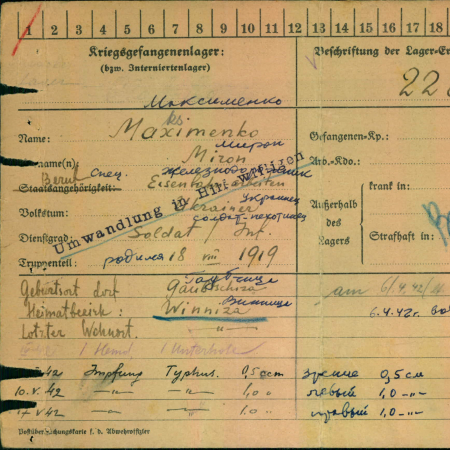 1 2 3 4 5 6 7 8 9 10 11 12 13 14 15 16 17 18
Kriegsgefangenenlager:
(bzw. Interniertenlager)
Beschriftung der Lager-Er
22
Максименко
Name: Maximenko
Gefangenen-Kp.:
Мирон
name(n) Miron
Arb.-Kdo.
Beruf Спец. железнодорожник
Staatsangehörigkeit: Eisenbahnarbeiten
krank in:
Украинец
Volkstum: Ukrainer
Außerhalb des Lagers
солдат-пехотинец
Dienstgrad: Soldat / Inf.
Strafhaft in:
Umwandlung in Hilfswilligen
Truppenteil: родился 18 VIII 1919
Geburtsort dorf
am 6/4 42
Винница
Heimatbezirk: Winniza
6.4.42г.
Letzter Wohnort. —"—
1 Hemd, 1 Unterhose
42 Impfung Typhus. 0,5 ccm
0,5 см
10.V.42 —"— —"— 1,0 —"—
1,0 -"-
17 V 42 —"— —"— 1,0 —"—
1,0 -"-
f. d. Abwehroffizier